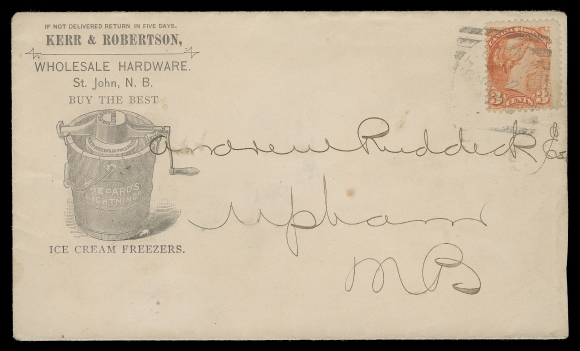 IF NOT DELIVERED RETURN IN FIVE DAYS.
KERR & ROBERTSON,
WHOLESALE HARDWARE.
St. John, N. B.
BUY THE BEST
SHEPARD'S
LIGHTNING
ICE CREAM FREEZERS.
CANADA POSTAGE
3 CENTS 3
Andrew Ruddick
Upham
NB